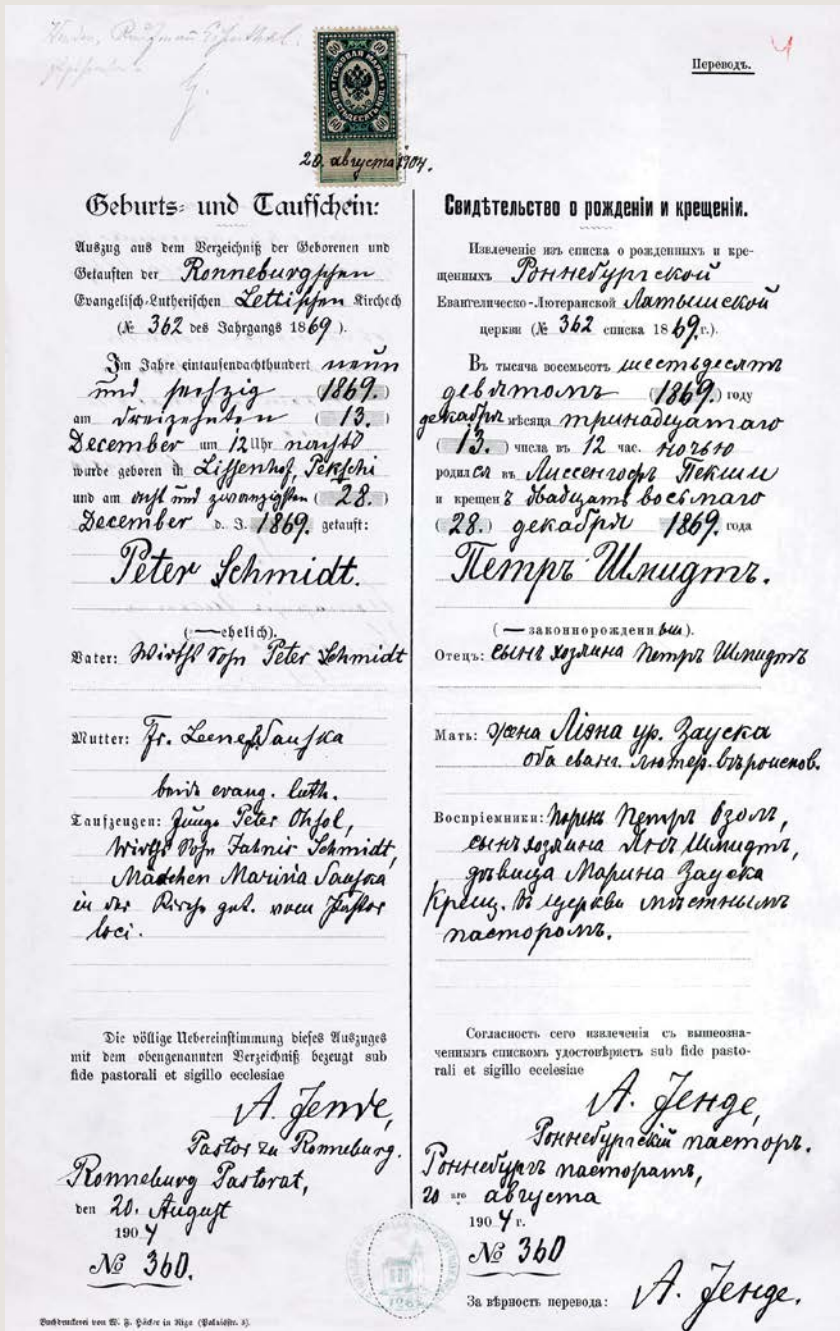 Переводъ.
4
60 60
ГЕРБОВАЯ МАРКА
ШЕСТЬДЕСЯТЪ КОП.
60 60
20. августа 1904.
Geburts- und Taufschein:
Auszug aus dem Verzeichniß der Geborenen und
Getauften der Ronneburgschen
Evangelisch-Lutherischen Lettischen Kirchech
(№ 362 des Jahrgangs 1869).
Im Jahre eintausendachthundert neun
und sechzig (1869.)
am dreizehnten (13.)
December um 12 Uhr nachts
wurde geboren in Lissenhof, Pekschi
und am acht und zwanzigsten (28.)
December d. J. 1869. getauft:
Peter Schmidt.
(—ehelich).
Vater: Wirths Sohn Peter Schmidt
Mutter: Fr. Leene Sauska
beide evang. luth.
Taufzeugen: Junge Peter Ohsol,
Wirths Sohn Jahnis Schmidt,
Mädchen Marina Sauska
in der Kirche get. vom Pastor
loci.
Die völlige Uebereinstimmung dieses Auszuges
mit dem obengenannten Verzeichniß bezeugt sub
fide pastorali et sigillo ecclesiae
A. Jende,
Pastor zu Ronneburg.
Ronneburg Pastorat,
den 20. August
1904
№ 360.
Buchdruckerei von W. F. Häcker in Riga (Palaisstr. 3).
Свидѣтельство о рожденіи и крещеніи.
Извлеченіе изъ списка о рожденныхъ и кре-
щенныхъ Роннебургской
Евангелическо-Лютеранской Латышской
церкви (№ 362 списка 1869.г.).
Въ тысяча восемьсотъ шестьдесятъ
девятомъ (1869.) году
декабря мѣсяца тринадцатаго
(13.) числа въ 12 час. ночью
родился въ Лиссенгофъ Пекши
и крещенъ двадцать восьмаго
(28.) декабря 1869. года
Петръ Шмидтъ.
(— законнорожденный).
Отецъ: сынъ хозяина Петръ Шмидтъ
Мать: жена Ліяна ур. Зауска
оба еванг. лютер. вѣроисков.
Воспріемники: Петръ Озолъ,
сынъ хозяина Шмидтъ,
дѣвица Марина Зауска
Крещ. въ церкви мѣстнымъ
пасторомъ.
Согласность сего извлеченія съ вышеозна-
ченнымъ спискомъ удостовѣряетъ sub fide pasto-
rali et sigillo ecclesiae
А. Jенде,
Роннебургскій пасторъ.
Роннебургъ пасторатъ,
20 го августа
1904 г.
№ 360
За вѣрность перевода: А. Jенде.